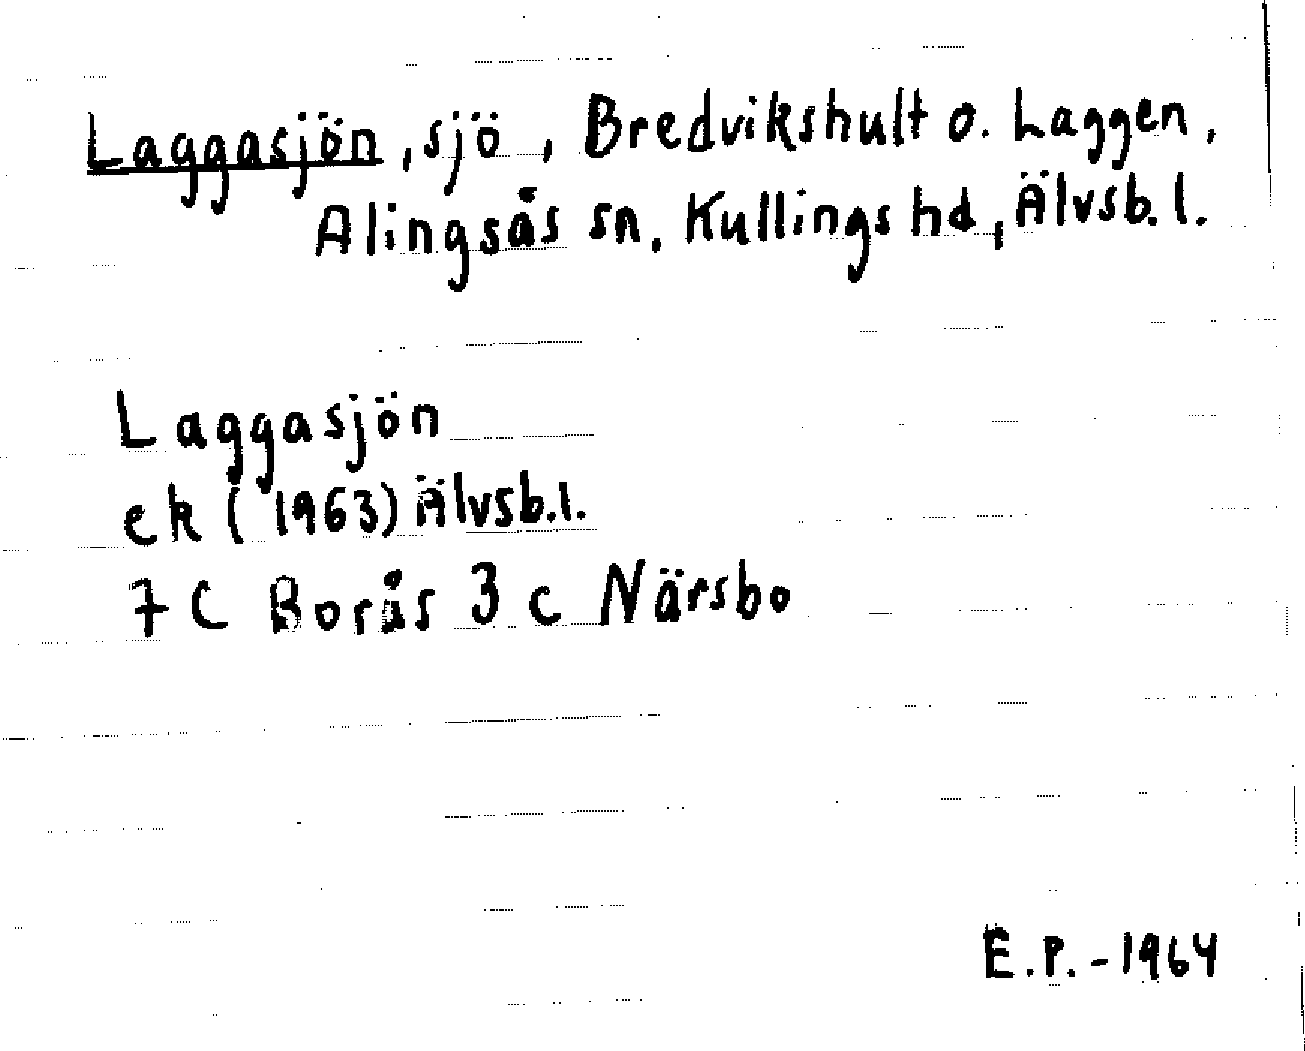 Laggasjön, sjö, Bredvikshult o. Laggen,
Alingsås sn. Kullings hd, Älvsb. l.
Laggasjön
ek (1963) Älvsb.l.
7 C Borås 3 c Närsbo
E.P.-1964